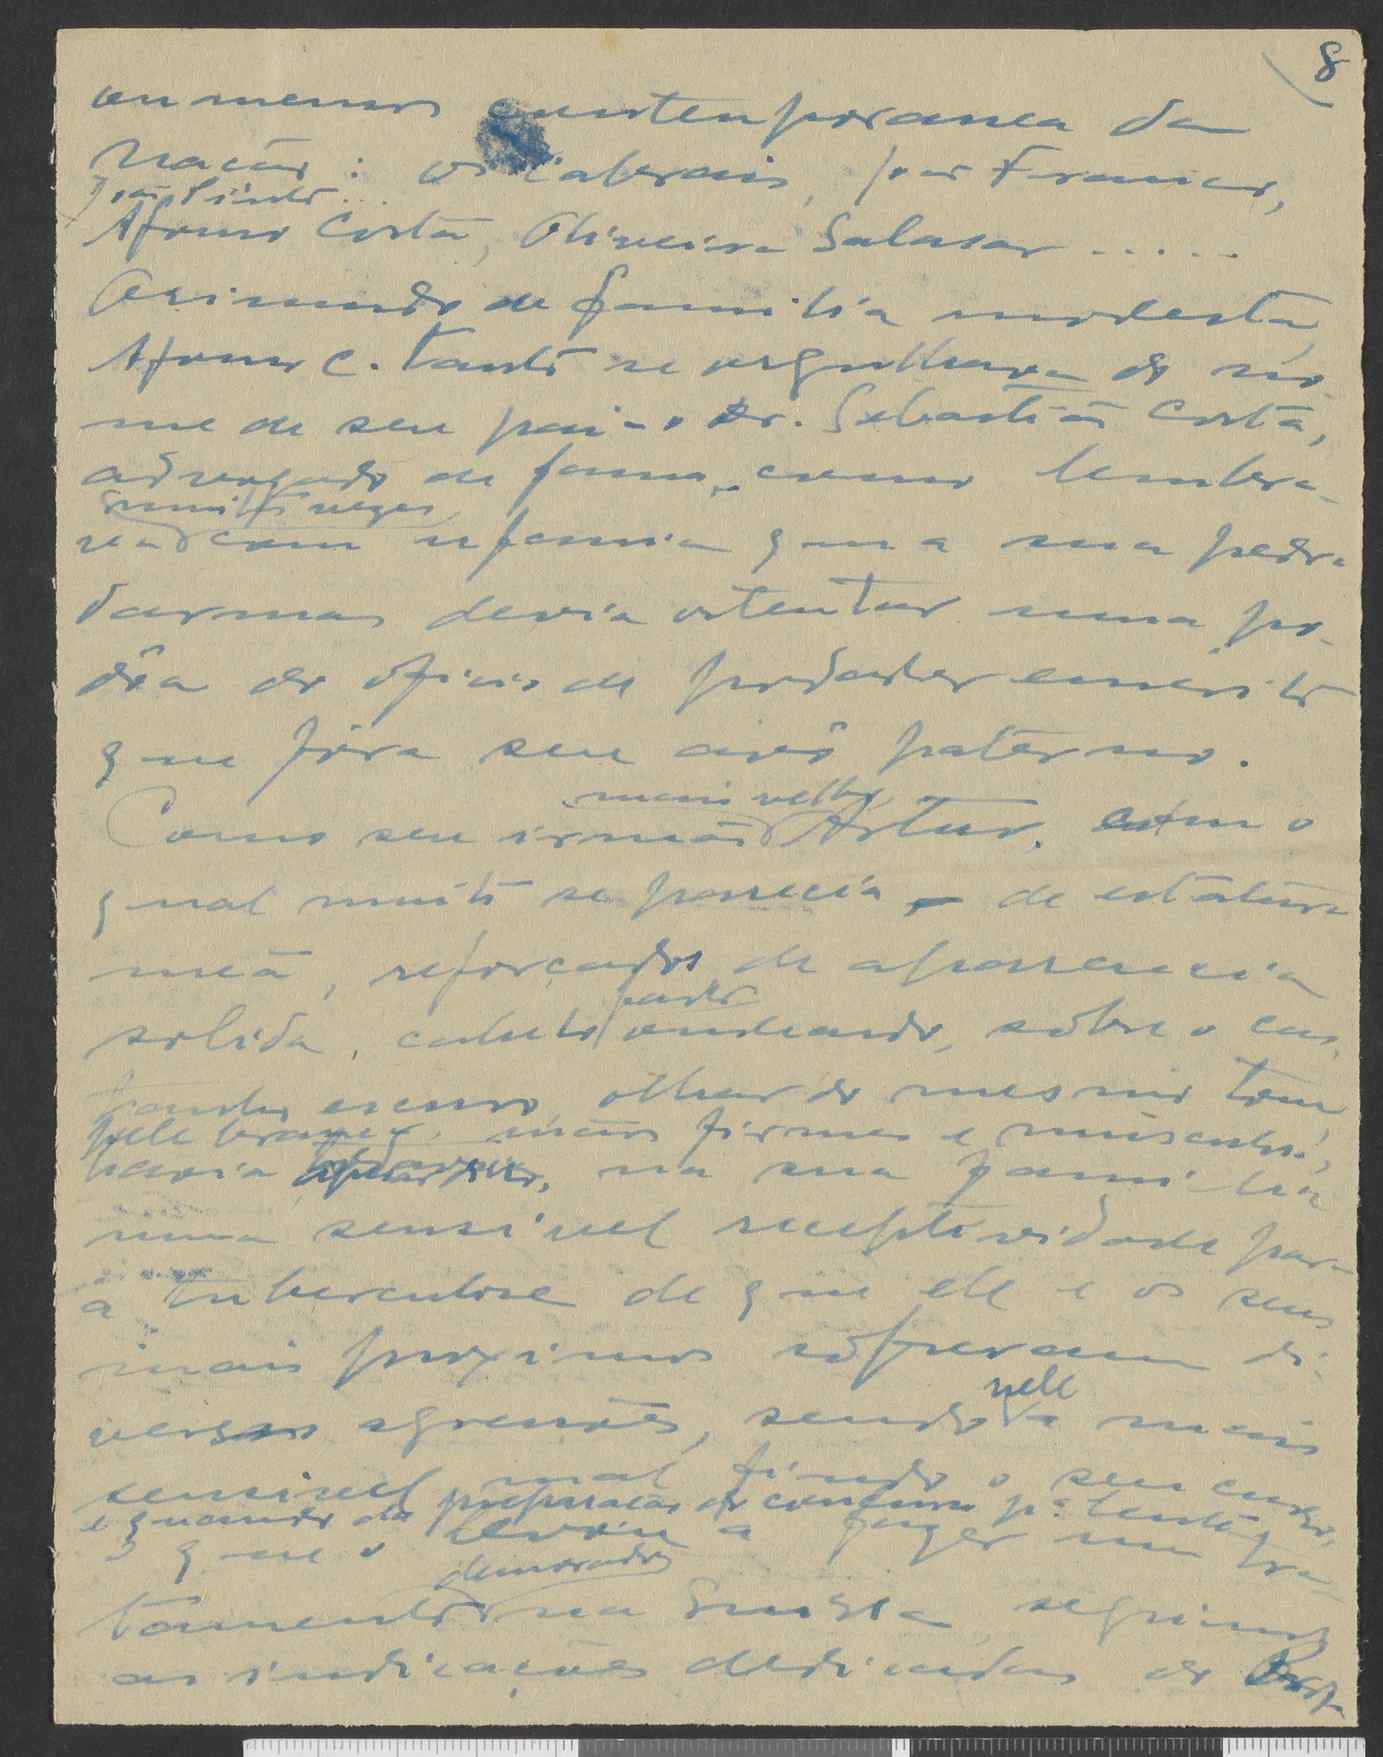 8
ou menos contemporanea da
Nação: os Cabrais, João Franco,
João Pinto...
Afonso Costa, Oliveira Salazar .....
Oriundo de familia modesta,
Afonso C. tanto se orgulhava do no
me de seu pai - o Dr. Sebastião Costa,
advogado de fama, como lembra-
muitas vezes
va com ufania que a sua pedra
darmas devia ostentar uma po-
dôa do oficio de podador emerito
que fôra seu avô paterno.
mais velho
Como seu irmão Artur, com o
qual muito se parecia de estatura
meã, reforçados de aparencia
solida, cabelo ondeando, sôbre o cas
tanho escuro, olhar do mesmo tom
pele branca, mãos firmes e musculosas,
havia na sua familia
uma sensivel receptividade para
a tuberculose de que ele e os seus
mais proximos sofreram di
nele
versas agressões, sendo a mais
sensivel mal findo o seu curso,
e quando da preparação do concurso pª lente,
que o levou a fazer um tra
demorado
tamento na Suissa, seguindo
as indicações dedicadas do Prof.